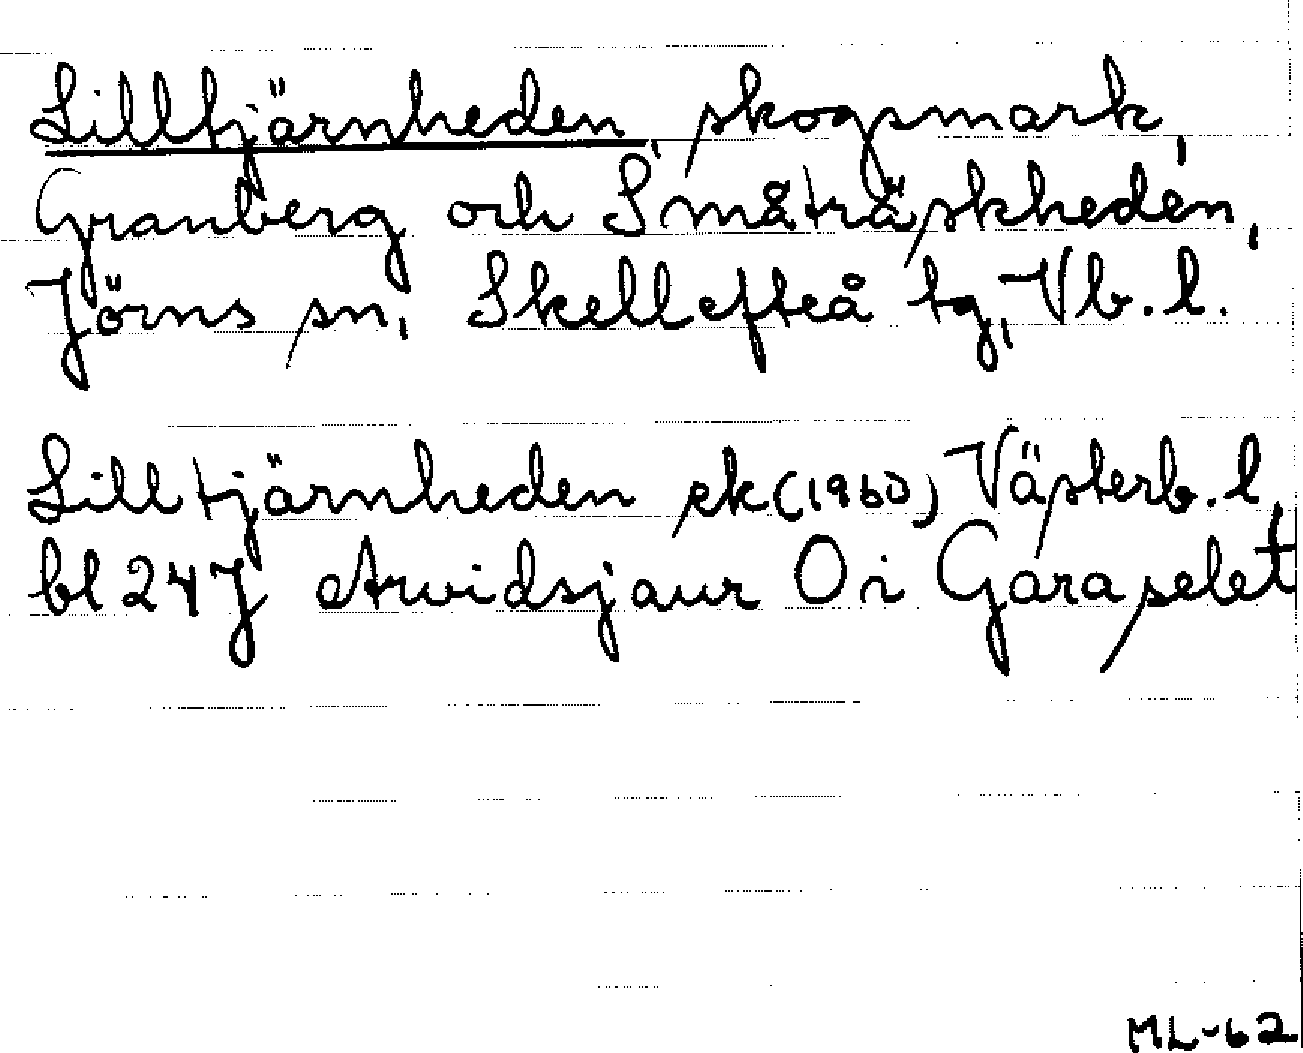 Lilltjärnheden, skogsmark,
Granberg och Småträskheden,
Jörns sn, Skellefteå tg, Vb. l.
Lilltjärnheden ek (1960) Västerb. l
bl 24J Arvidsjaur Oi Garaselet
ML-62